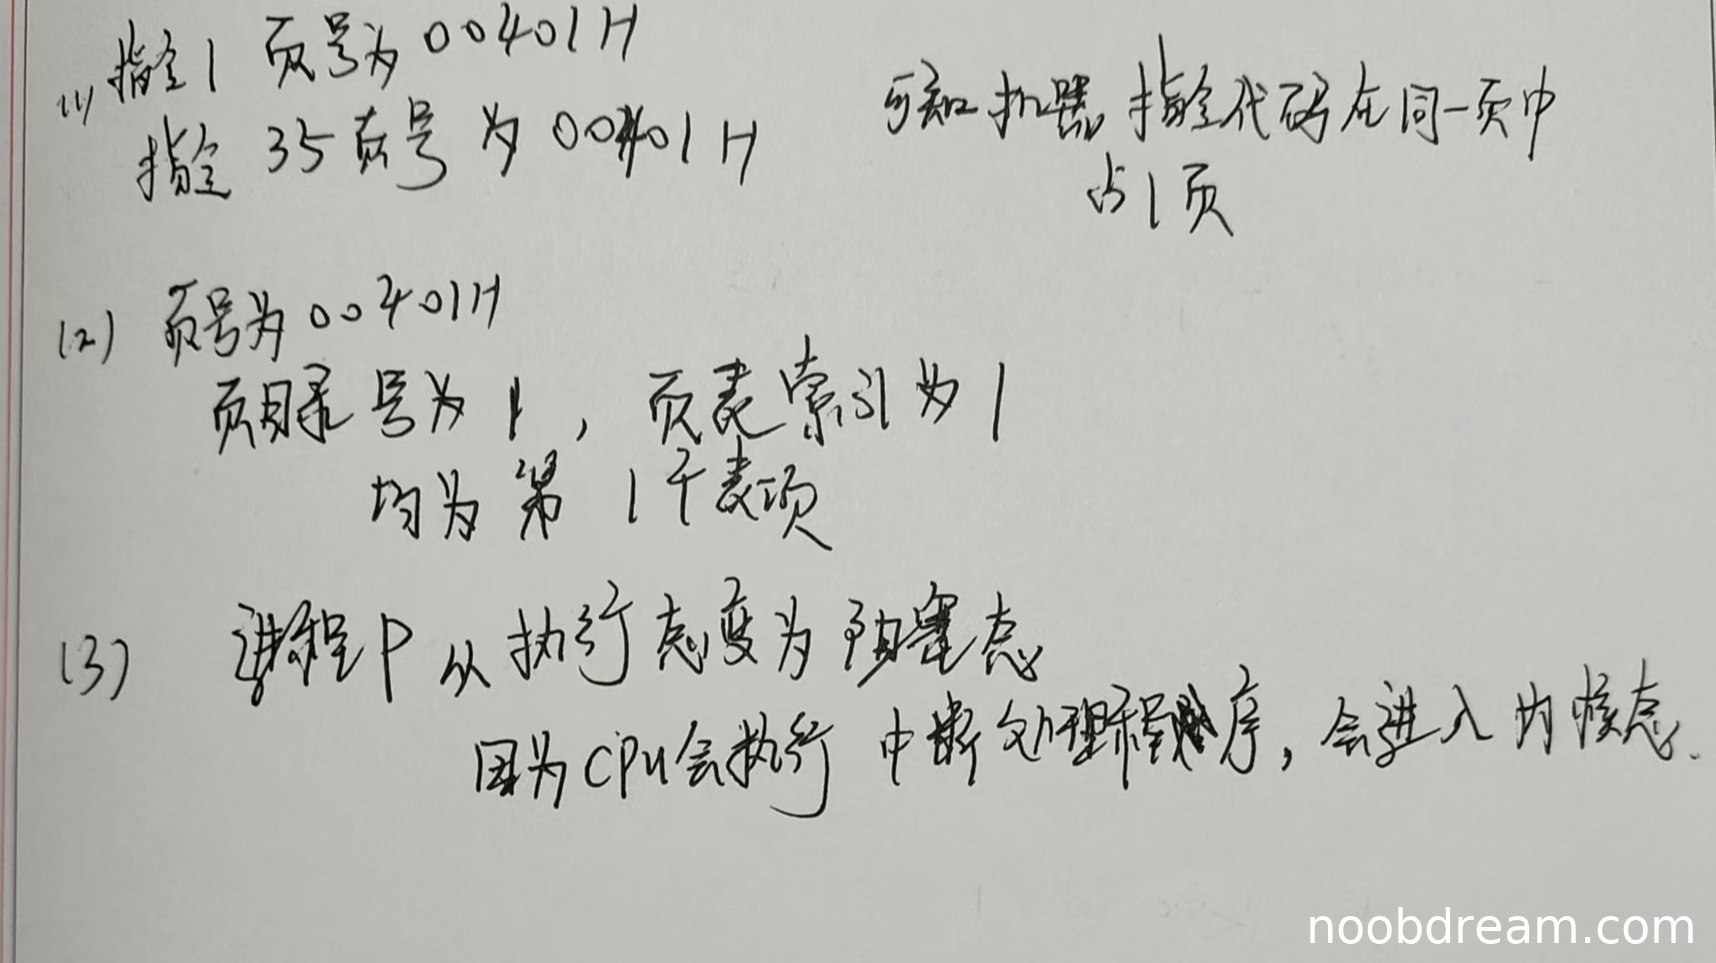 (1) 指令1 页号为 00401H
指令 35页号 为 00401H
可知 机器 指令代码在同一页中
占1页
(2) 页号为 00401H
页目录 号为 1 , 页表索引为 1
均为 第 1个表项
(3) 进程P 从 执行态变为 阻塞态
因为CPU会执行 中断处理程序, 会进入内核态.
noobdream.com